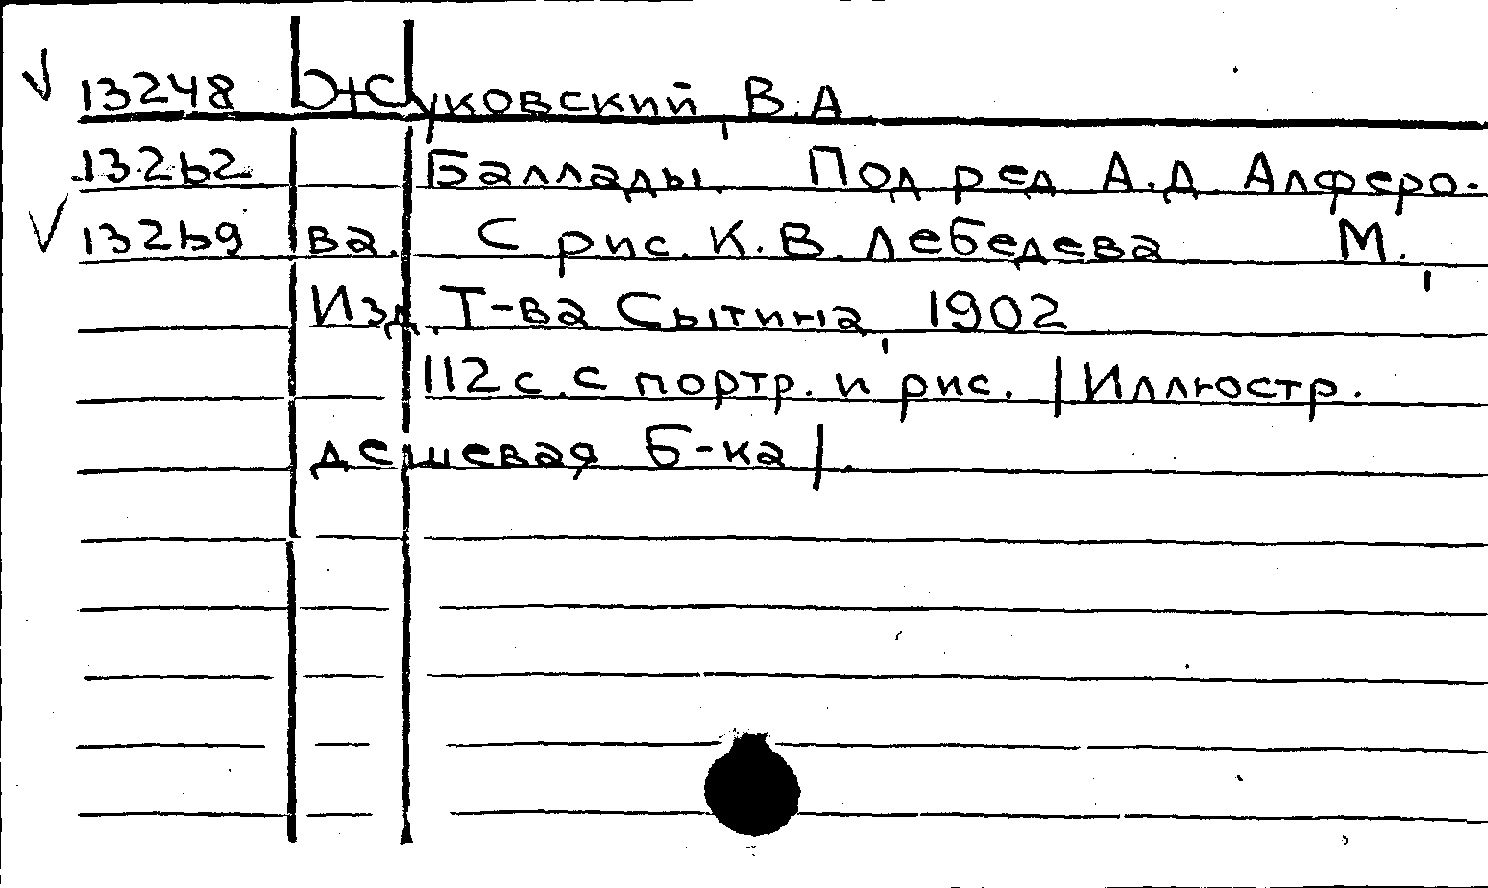 √ 13248 Жуковский, В.А
13262 Баллады. Под ред А.Д. Алферо-
√ 13269 ва. С рис. К.В. Лебедева М.,
Изд. Т-ва Сытина, 1902
112 с. с портр. и рис. /Иллюстр.
дешевая Б-ка/.